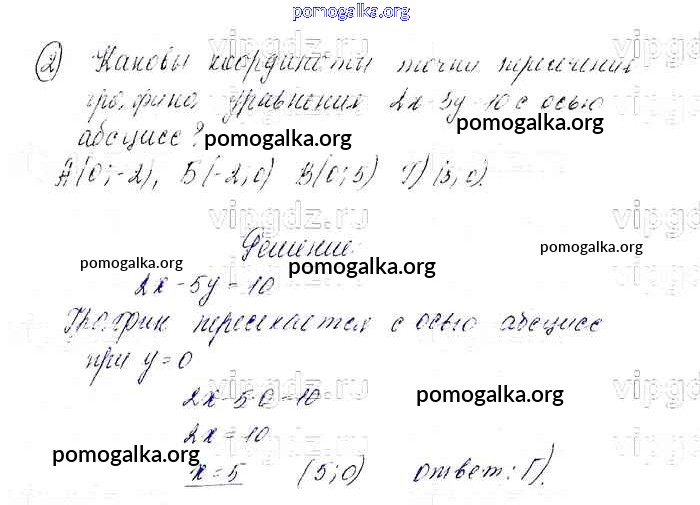 pomogalka.org
2) Каковы координаты точки пересечения
графика уравнения 2x-5y=10 с осью
pomogalka.org
абсцисс?
pomogalka.org
А(0;-2), Б(-2;0) В(0;5) Г)(5;0).
Решение:
pomogalka.org
pomogalka.org
pomogalka.org
2x-5y=10
График пересекается с осью абсцисс
при y=0
vipgdz.ru
2x-5·0=10
pomogalka.org
2x=10
pomogalka.org
x=5 (5;0) ответ: Г).